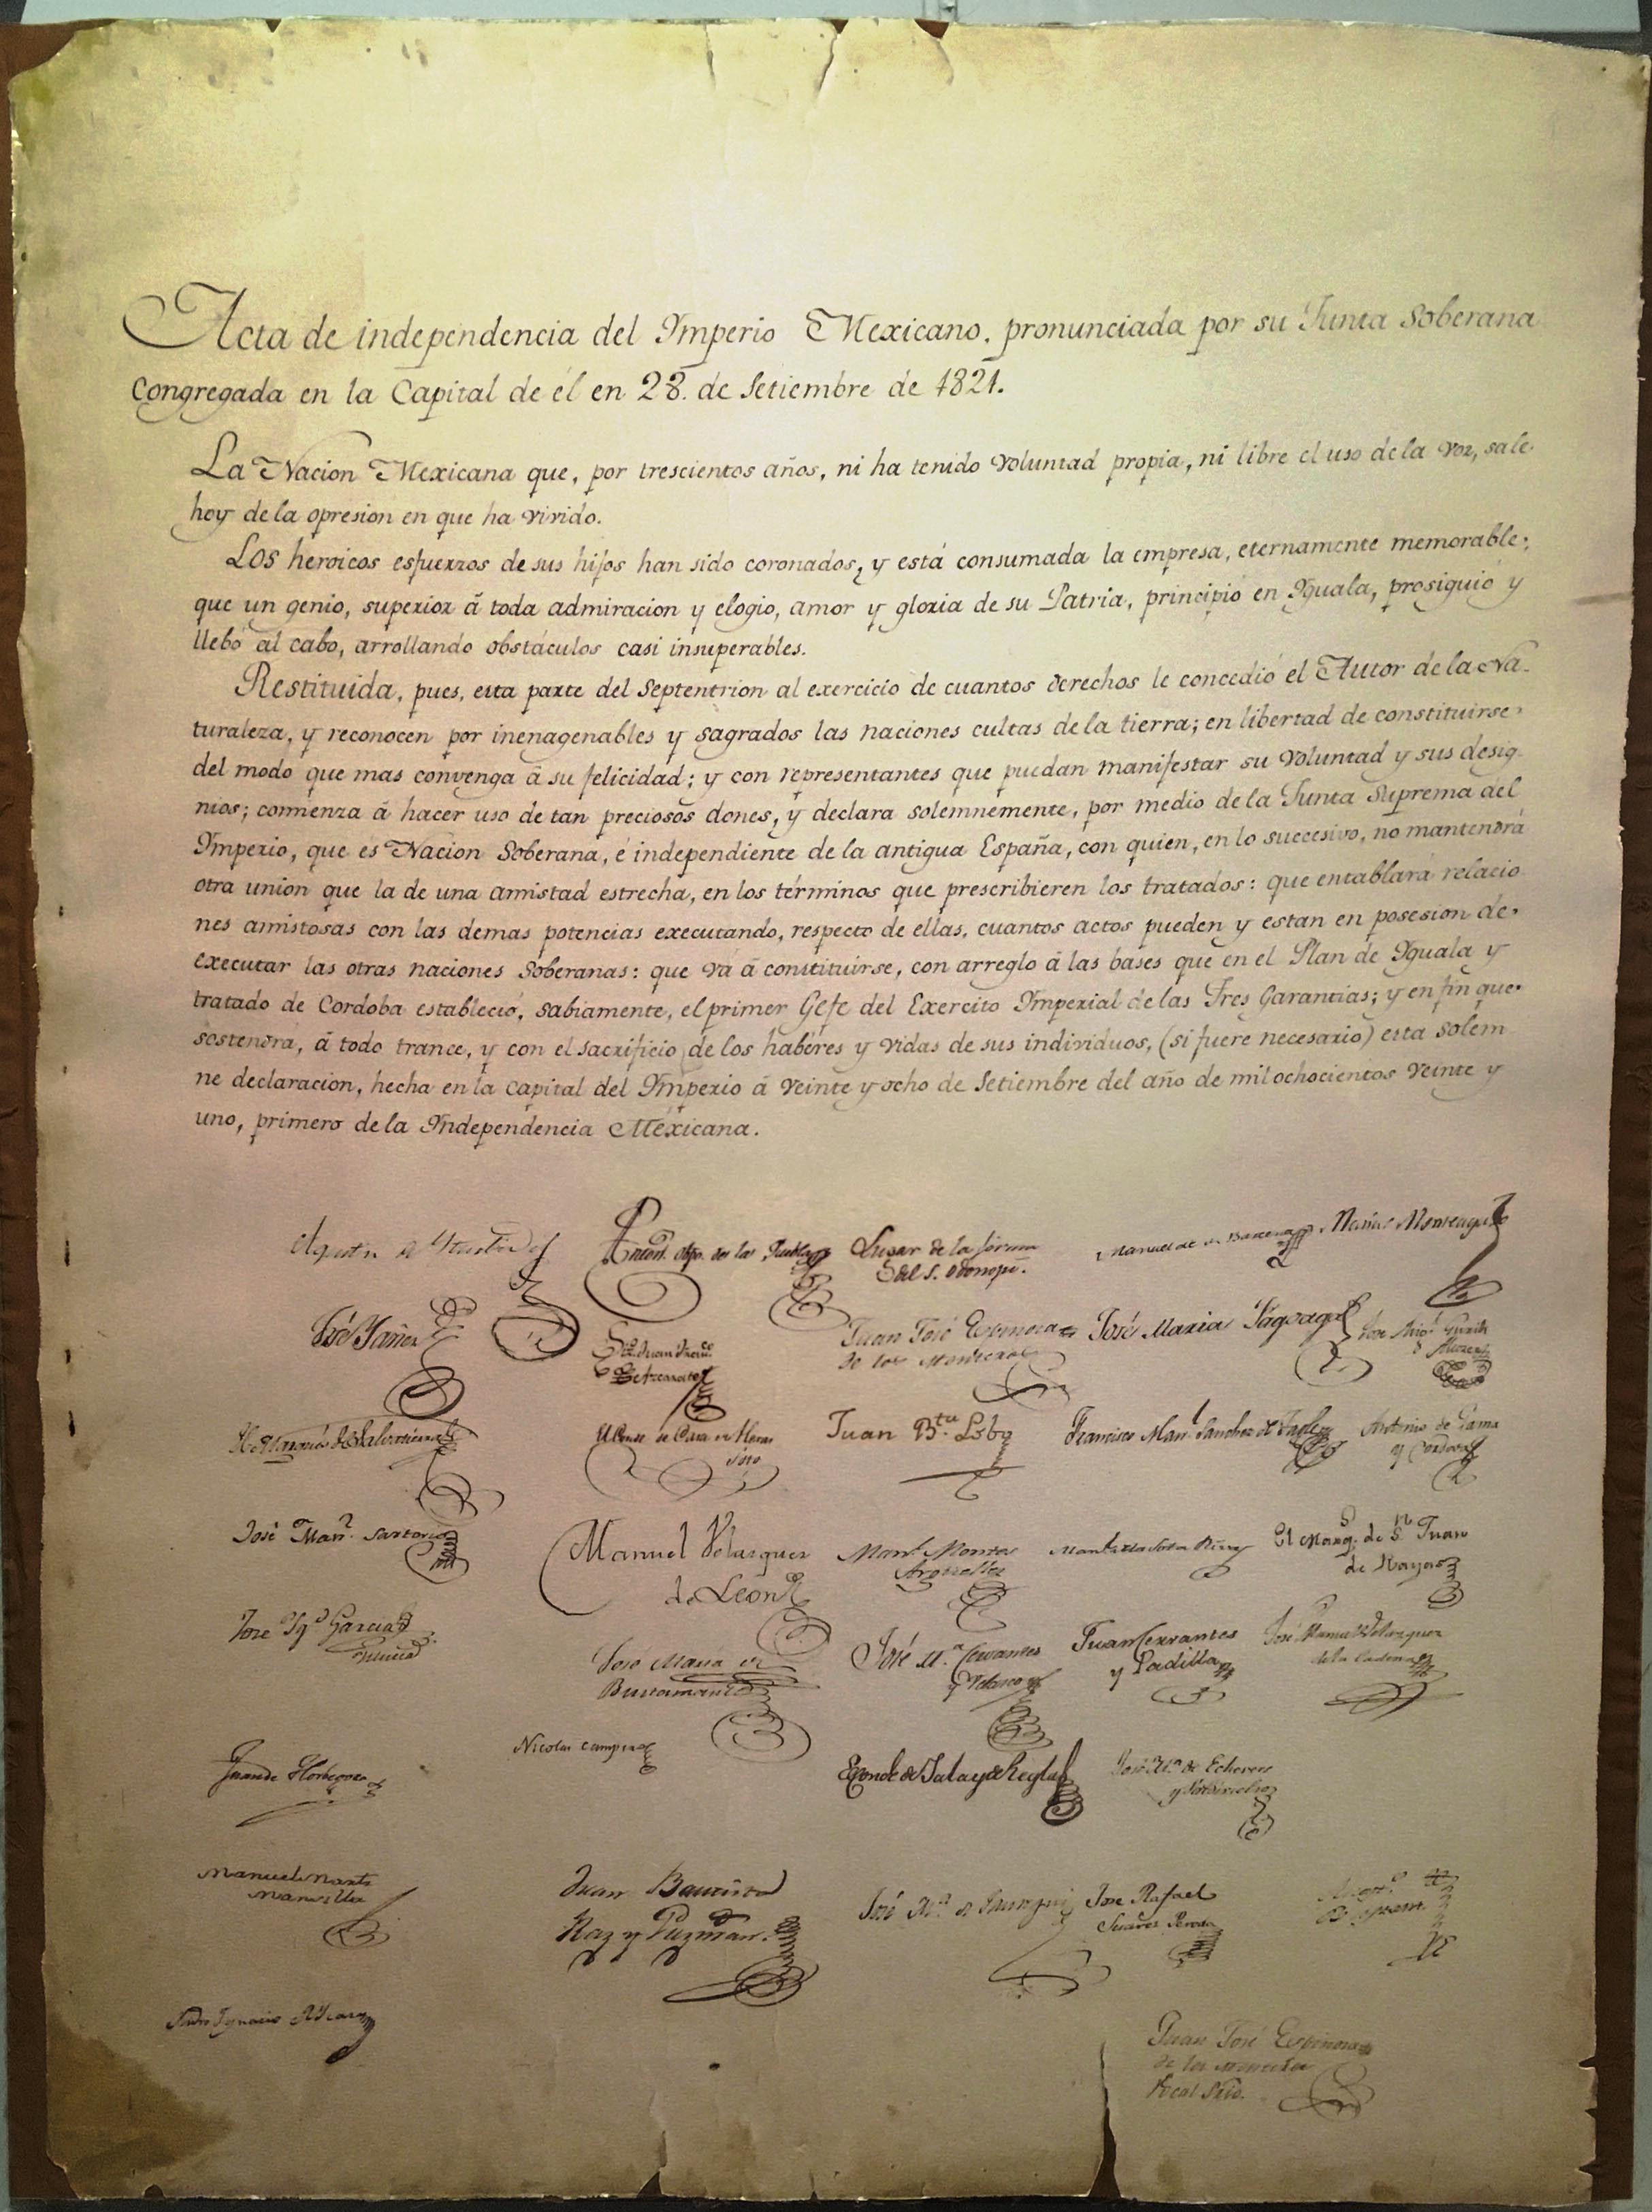 Acta de independencia del Ymperio Mexicano, pronunciada por su Junta Soberana
congregada en la Capital de él en 28. de Setiembre de 1821.
La Nacion Mexicana que, por trescientos años, ni ha tenido voluntad propia, ni libre el uso de la voz, sale
hoy de la opresion en que ha vivido.
Los heroicos esfuerzos de sus hijos han sido coronados, y está consumada la empresa, eternamente memorable,
que un genio, superior á toda admiracion y elogio, amor y gloria de su Patria, principió en Yguala, prosiguió y
llebó al cabo, arrollando obstáculos casi insuperables.
Restituida, pues, esta parte del Septentrion al exercicio de cuantos derechos le concedió el Autor de la Na-
turaleza, y reconocen por inenagenables y sagrados las naciones cultas de la tierra; en libertad de constituirse
del modo que mas convenga á su felicidad; y con representantes que puedan manifestar su voluntad y sus desig-
nios; comienza á hacer uso de tan preciosos dones, y declara solemnemente, por medio de la Junta Suprema del
Ymperio, que és Nacion Soberana, é independiente de la antigua España, con quien, en lo succesivo, no mantendrá
otra union que la de una amistad estrecha, en los términos que prescribieren los tratados: que entablará relacio-
nes amistosas con las demas potencias executando, respecto de ellas, cuantos actos pueden y estan en posesion de
executar las otras naciones Soberanas: que vá á constituirse, con arreglo á las bases que en el Plan de Yguala y
tratado de Cordoba estableció, sabiamente, el primer Gefe del Exercito Ymperial de las Tres Garantias; y en fin que
sostendrá, á todo trance, y con el sacrificio de los habéres y vidas de sus individuos, (si fuere necesario) esta solem-
ne declaracion, hecha en la capital del Ymperio á veinte y ocho de Setiembre del año de mil ochocientos veinte y
uno, primero de la Yndependencia Mexicana.
Agustin de Yturbide
Anton. Obpo. de la Puebla
Lugar de la firma
del S. Odonojú.
Manuel de la Barcena
Matias Monteagudo
José Yañez
Juan José Espinosa
de los Monteros
José Maria Fagoaga
Juan B.ta Lobo
Francisco Man.l Sanchez de Tagle
Antonio de Gama
y Cordova
José Man.l Sartorio
Manuel Velasquez
de Leon
Man.l Montes
Argüelles
El Marq. de S.n Juan
de Rayas
José Maria de
Bustamante
José M.a Cervantes
y Velasco
Juan Cervantes
y Padilla
José Manuel Velazquez
de la Cadena
Juan de Horbegoso
Nicolas Campero
El Conde de Jala y de Regla
José M.a de Echevers
y Valdivielso
Manuel Martz
Mansilla
Juan Bautista
Raz y Guzman.
José Rafael
Suarez Pereda
Juan José Espinosa
de los Monteros
Vocal Srio.